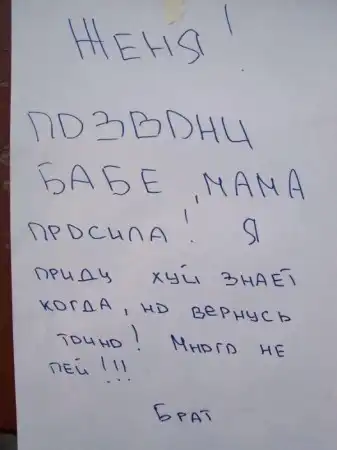 ЖЕНЯ!
ПОЗВОНИ
БАБЕ, МАМА
ПРОСИЛА! Я
ПРИДУ ХУЙ ЗНАЕТ
КОГДА, НО ВЕРНУСЬ
ТОЧНО! МНОГО НЕ
ПЕЙ!!!
БРАТ